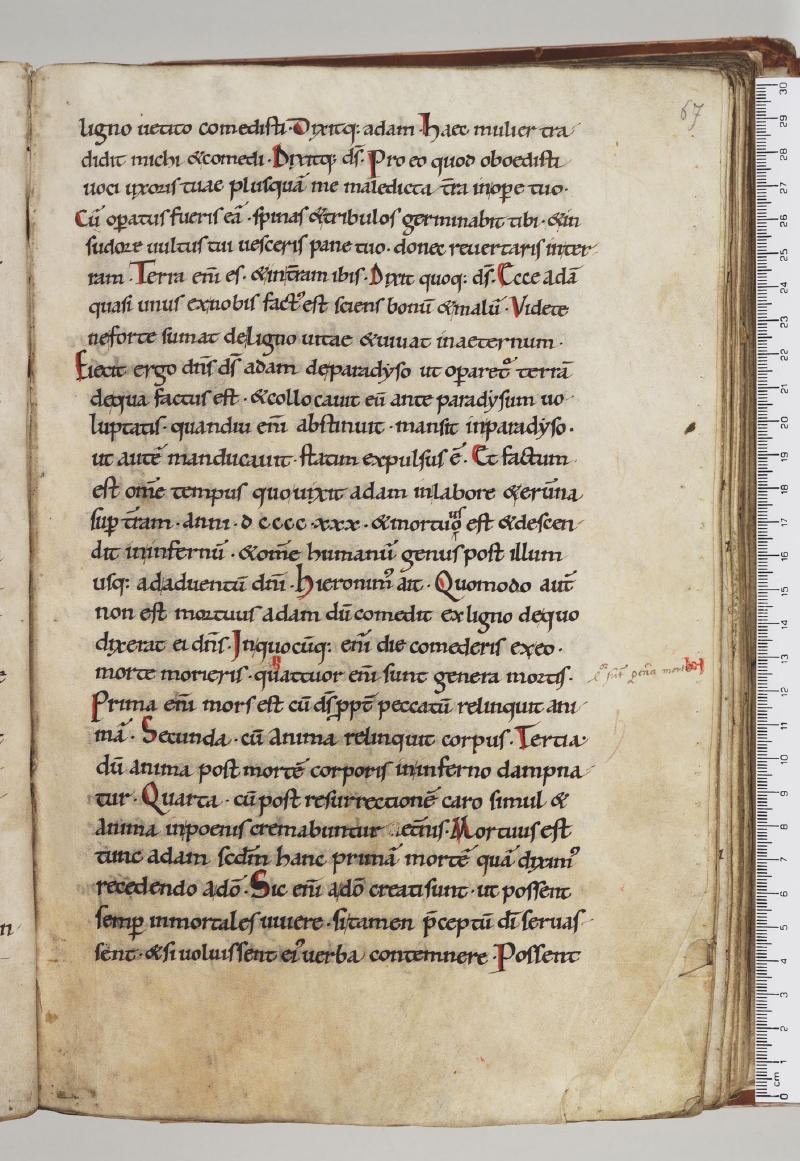 67
ligno uetito comedisti· Dixitq: adam Haec mulier tra
didit michi &comedi· Dixitq: dſ̄· Pro eo quod oboedisti
uoci uxoris tuae plusquā me maledicta t̄ra inope tuo·
Cū opatus fueris eā· spinas &tribulos germinabit tibi· &in
sudore uultus tui uesceris pane tuo· donec reuertaris inter
ram· Terra eni̅ es· &int̄ram ibis· Dixit quoq: dſ̄· Ecce adā
quasi unus exnobis fact᾽est sciens bonū &malū· Videte
neforte sumat deligno uitae &uiuat inaeternum·
Eiecit ergo dn̄s dſ̄ adam deparadyso ut oparet᷒ terrā
dequa factus est· &collocauit eū ante paradysum uo
luptatis· quandiu eni̅ abstinuit· mansit inparadyso·
ut autē manducauit· statim expulsus ē· Et factum
est om̄e tempus quo uixit adam inlabore &erūna
sup t̄ram· anni· dcccc·xxx· &mortuus est &descen
dit ininfernū· &om̄e humanū genus post illum
usq: adaduentū dn̄i· Hieronim᾽ ait· Quomodo aut̄
non est mortuus adam dū comedit exligno dequo
dixerat ei dn̄s· Inquocūq: eni̅ die comederis exeo·
morte morieris· quattuor eni̅ sunt genera mortis·
Prima eni̅ mors est cū dſ̄ ppt̄ peccatū relinquit ani
mā· Secunda· cū anima relinquit corpus· Tertia·
dū anima post mortē corporis ininferno dampna
tur· Quarta· cū post resurrectionē caro simul &
anima inpoenis cremabuntur et̄nis· Mortuus est
tunc adam scd̄m hanc primā mortē quā dixim᾽
recedendo adō· Sic eni̅ adō creati sunt· ut possent
semp inmortales uiuere· si tamen p̄ceptū dī seruas
sent· &si uoluissent ei᾽ uerba contemnere· Possent